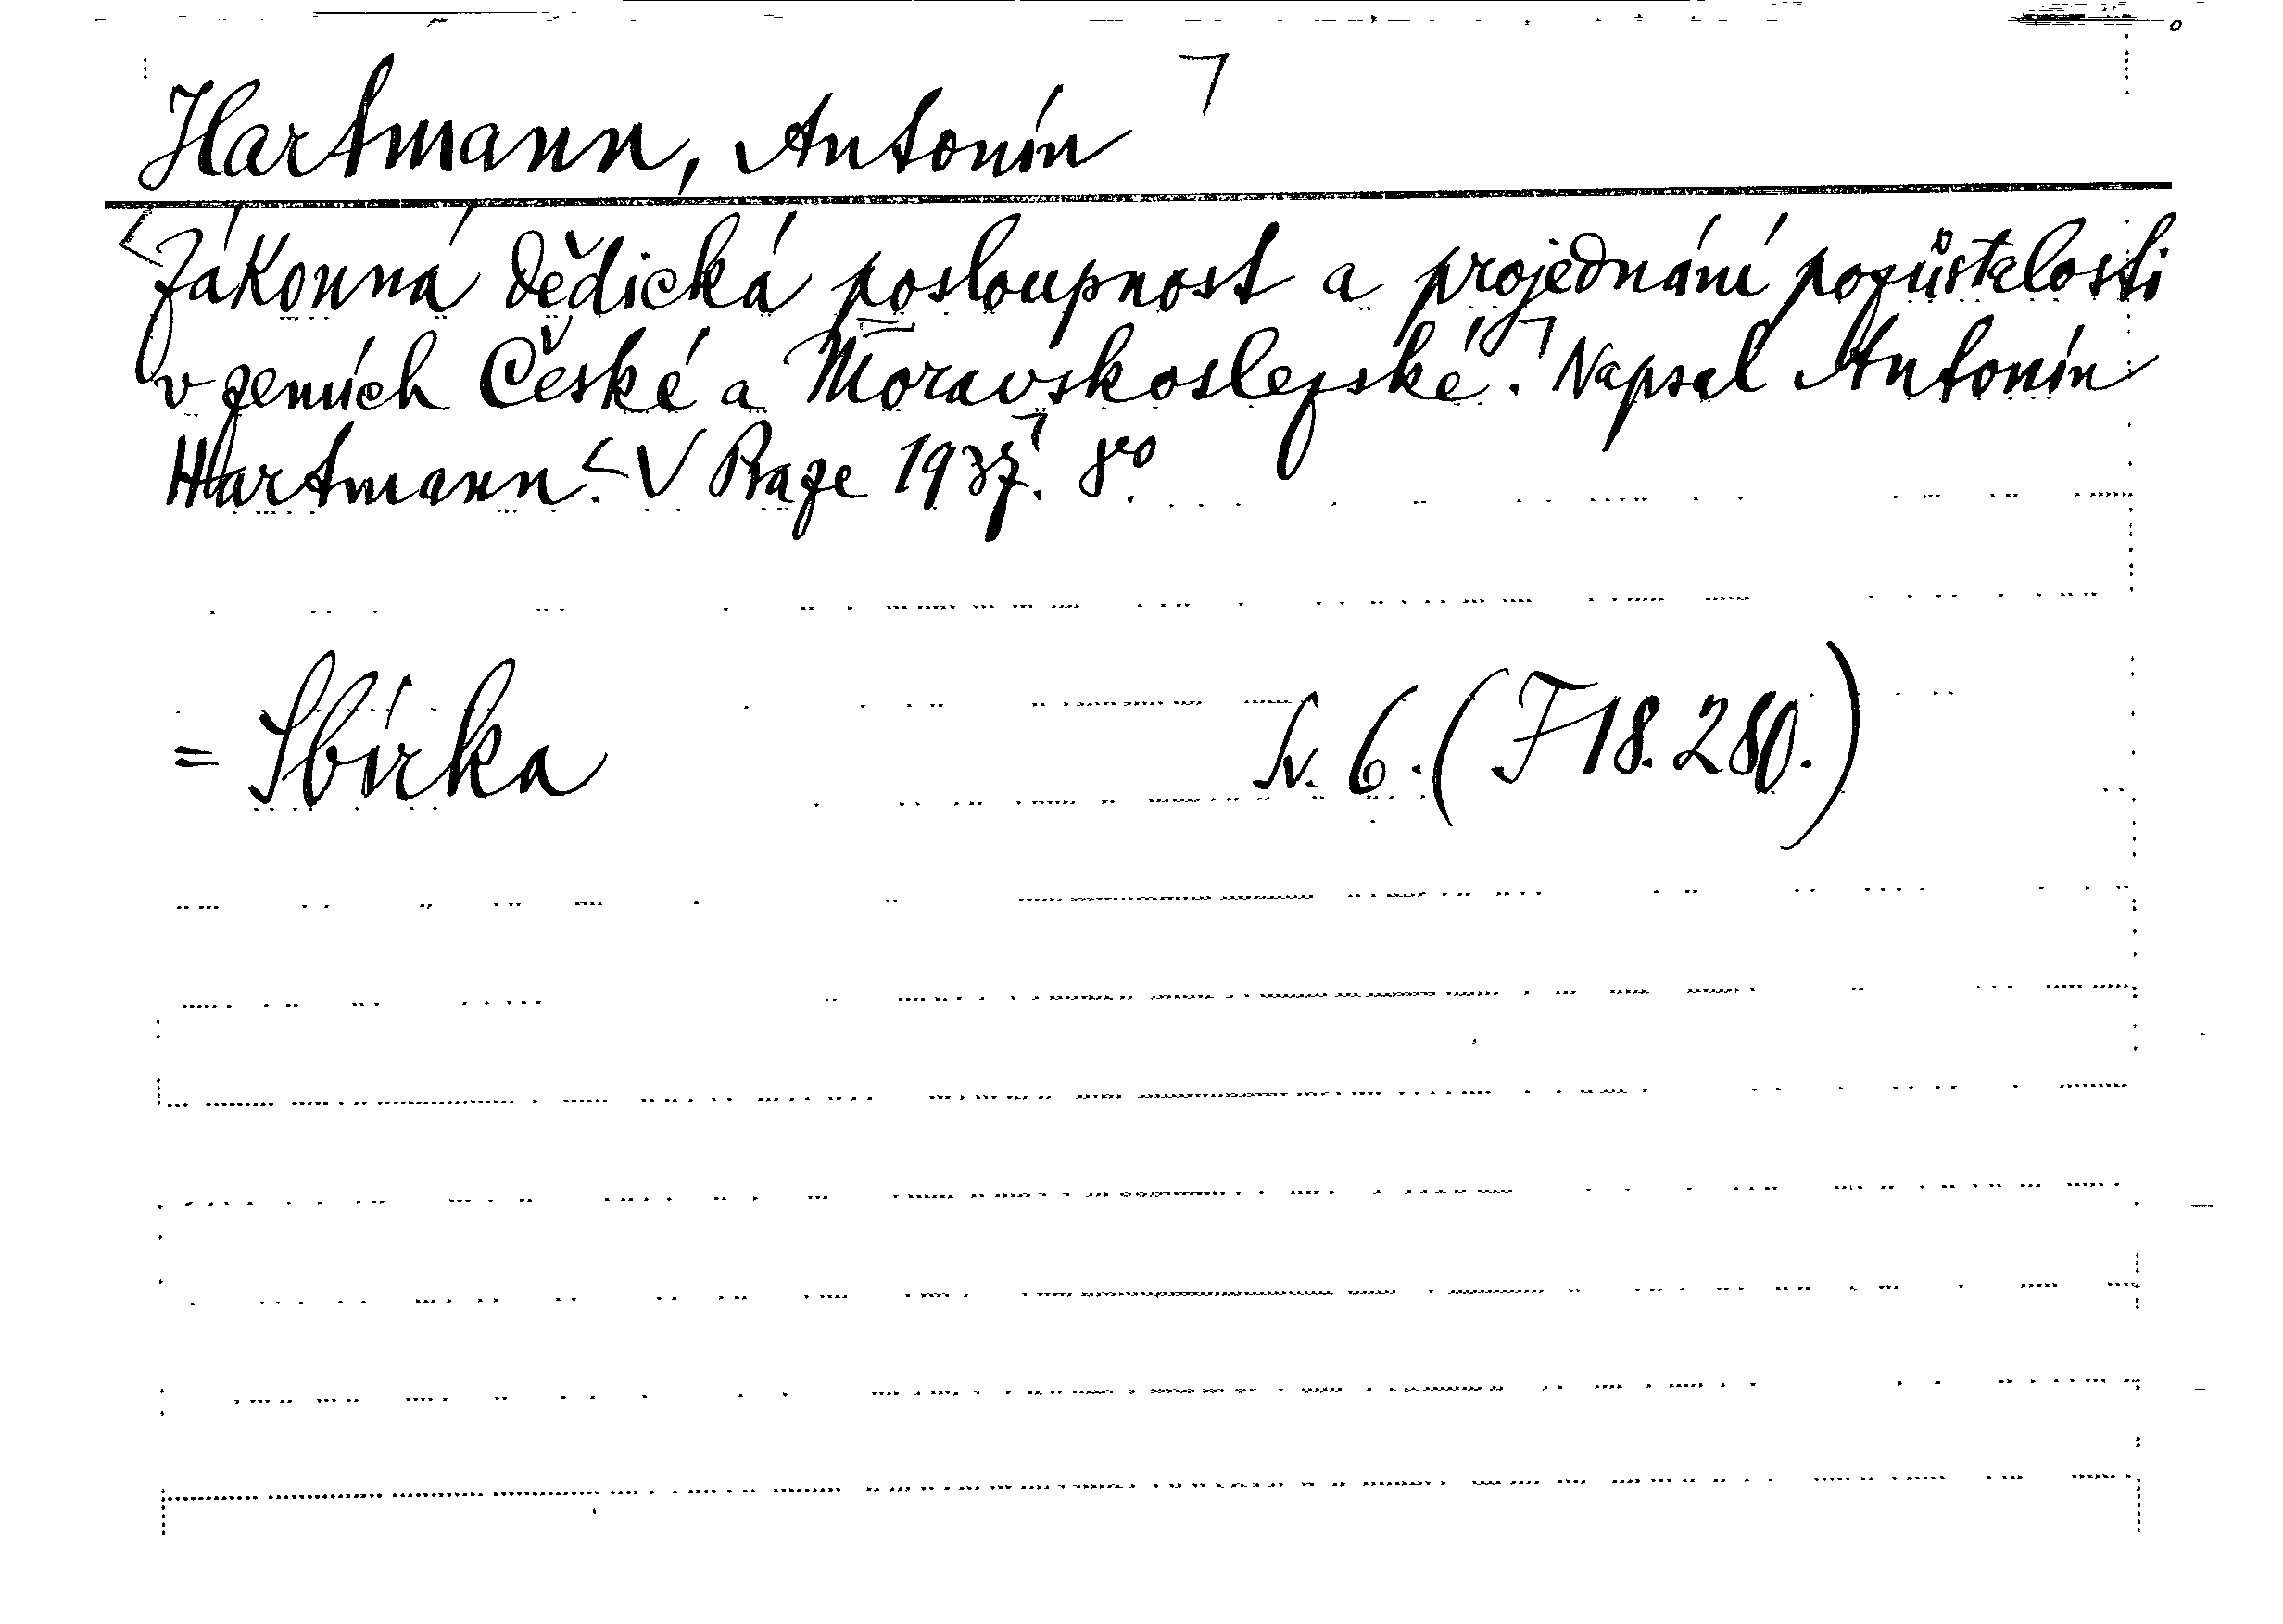 Hartmann, Antonín
Zákonná dědická posloupnost a projednání pozůstalosti
v zemích České a Moravskoslezské. Napsal Antonín
Hartmann. V Praze 1937. 8vo.
= Sbírka Sv. 6. (F 18.280.)